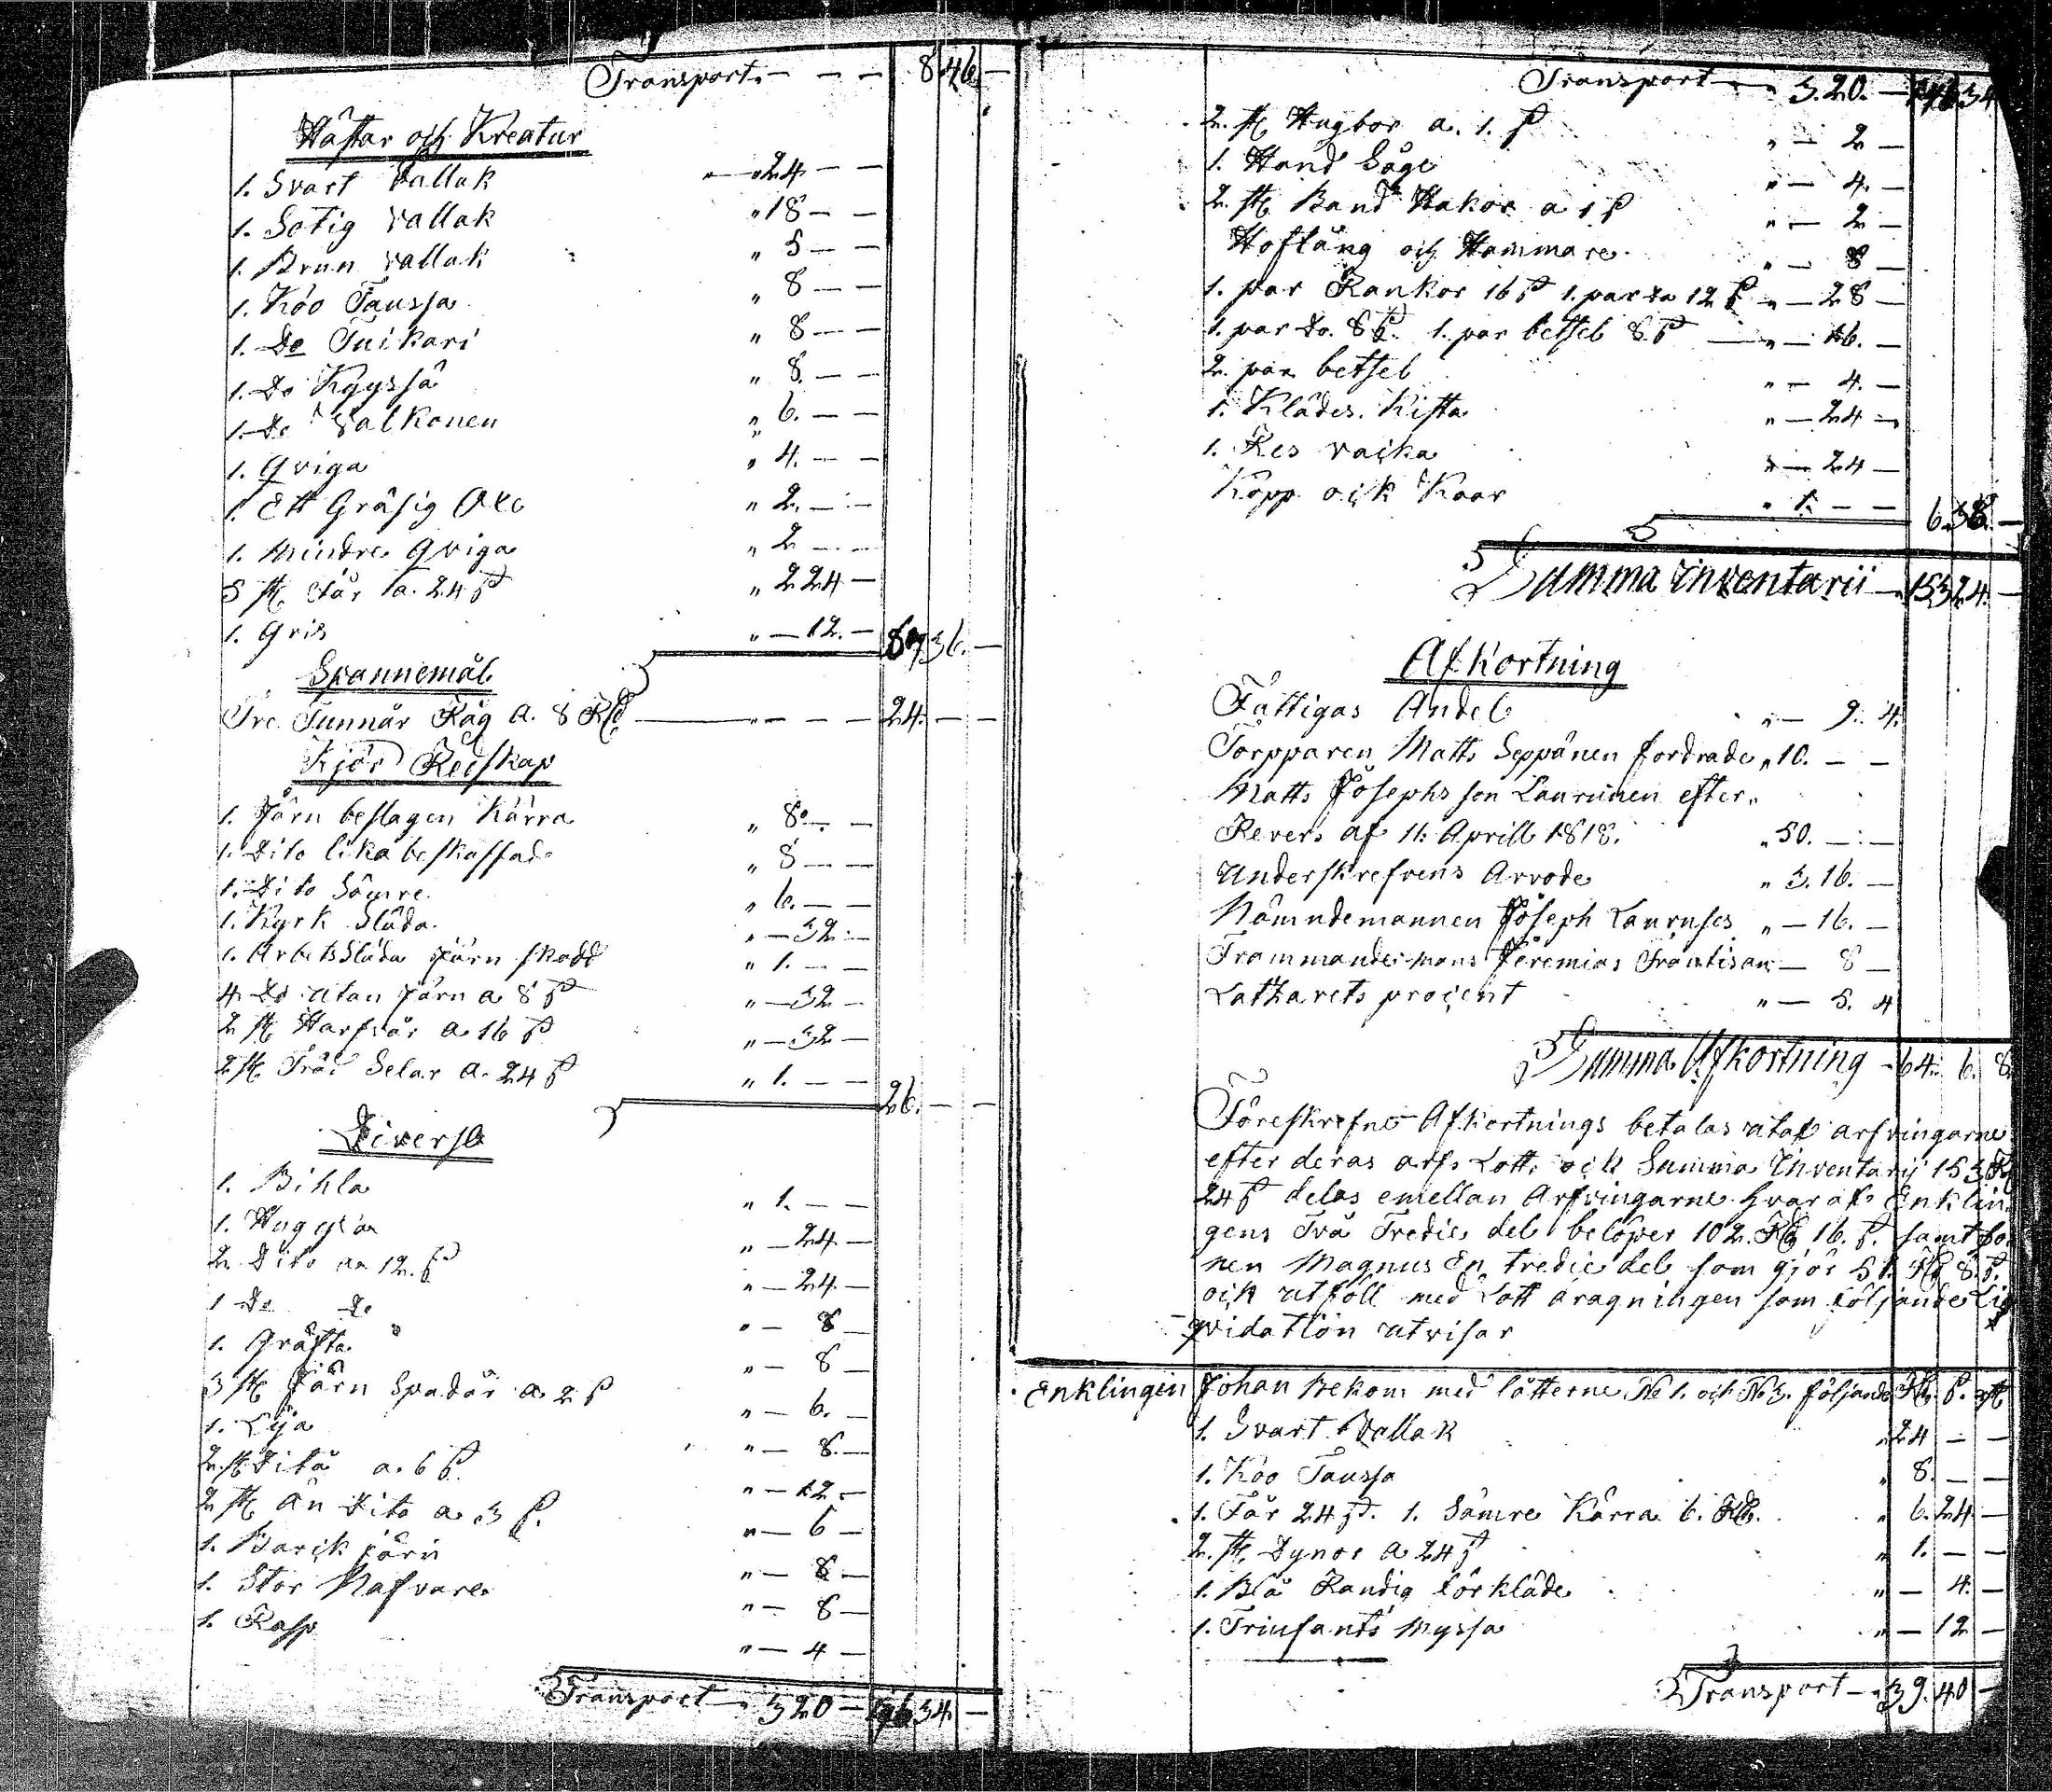 Transport. — — — 8 46 —
Hästar och Kreatur
1. Svart Vallak " 24 — —
1. Sotig Vallak " 18 — —
1. Brun Vallak " 5 — —
1. Koo Taussa " 8 — —
1. Do Tuikari " 8 — —
1. Do Kyyssä " 8. — —
1. Do Valkonen " 6. — —
1. Qviga " 4. — —
1. Ett Gräsig Oxe " 2. — —
1. Mindre Qviga " 2 — —
5 st Får a. 24 ß " 2 24 —
1. Gris " — 12. — 87 36. —
Spannemål
Tre Tunnår Råg a. 8 Rb — " — — — 24. — —
Kjör Redskap
1. Järn beslagen Kärra " 8. — —
1. Dito lika beskaffad " 8 — —
1. Dito Sämre " 6. — —
1. Kyrk Släda " — 32 —
1. Arbets Släda järn skodd " 1. — —
4 Do utan järn a 8 ß " — 32 —
2 st Harfvår a 16 ß " — 32 —
2 st Träd Selar a. 24 ß " 1. — —
26. — —
Diverse
1. Bihla " 1. — —
1. Hugg " — 24. —
2 Dito a 12. ß " — 24. —
1 Do Do " — 8 —
1. Gräfta " — 8 —
3 st Järn Spadår a. 2 ß " — 6. —
1. Lija " — 8. —
2. st Ditå a. 6 ß. " — 12. —
2 st än Dito a. 3 ß. " — 6 —
1. Barck järn " — 8 —
1. Stor Nafvare " — 8 —
1. Rasp " — 4 —
Transport — 3 20 — 34 —
Transport — 3. 20. — 34
2. st Hugbor a. 1. ß " — 2 —
1. Hand Såge " — 4. —
2. st Band Hakor a 1 ß " — 2 —
Hoftång och Hammare " — 8 —
1. par Rankor 16 ß 1. par Do 12 ß " — 28 —
1. par Do. 8 ß. 1. par betsel 8 ß — " — 16. —
2. par betsel " — 4. —
1. Klädes Kista " — 24 —
1. Res " — 24 —
Kopp och Kaar " 1. — —
6. 38. —
Summa Inventarii — 153 24. —
Afkortning
Fattigas Andel " — 9. 4.
Torpparen Matts Seppänen fordrade " 10. — —
Matts Josephs son Laurunen efter
Revers af 11. Aprill 1818. " 50. — —
Underskrefvens Arvode " 3. 16. —
Nämndemannen Joseph Lauruses " — 16. —
Frammandemans Jeremias — 8 —
Latharets procent " — 5. 4
Summa Afkortning — 64. 6. 8
Föreskrefne Afkortnings betalas utaf arfvingarne
efter deras arfs Lott och Summa Inventarii 153 Rb
24 ß delas emellan Arfvingarne hvaraf Enklin
gens Två Tredie del belöper 102. Rb 16. ß. samt So
nen Magnus En tredie del som gjör 51. Rb 8. ß.
och utföll med Lott dragningen som följande Liq
qvidation utvisar
Enklingen Johan Bekom med lotterne No 1. och No 3. följande Rb. ß. st
1. Svart Vallak " 24 — —
1. Koo Taussa " 8. — —
1. Får 24 ß. 1. Sämre Kärra 6. Rb. " 6. 24. —
2. st Dynor a 24 ß " 1. — —
1. Blå Randig förkläde " — 4. —
1. Triufants Myssa " — 12 —
Transport — 39. 40 —